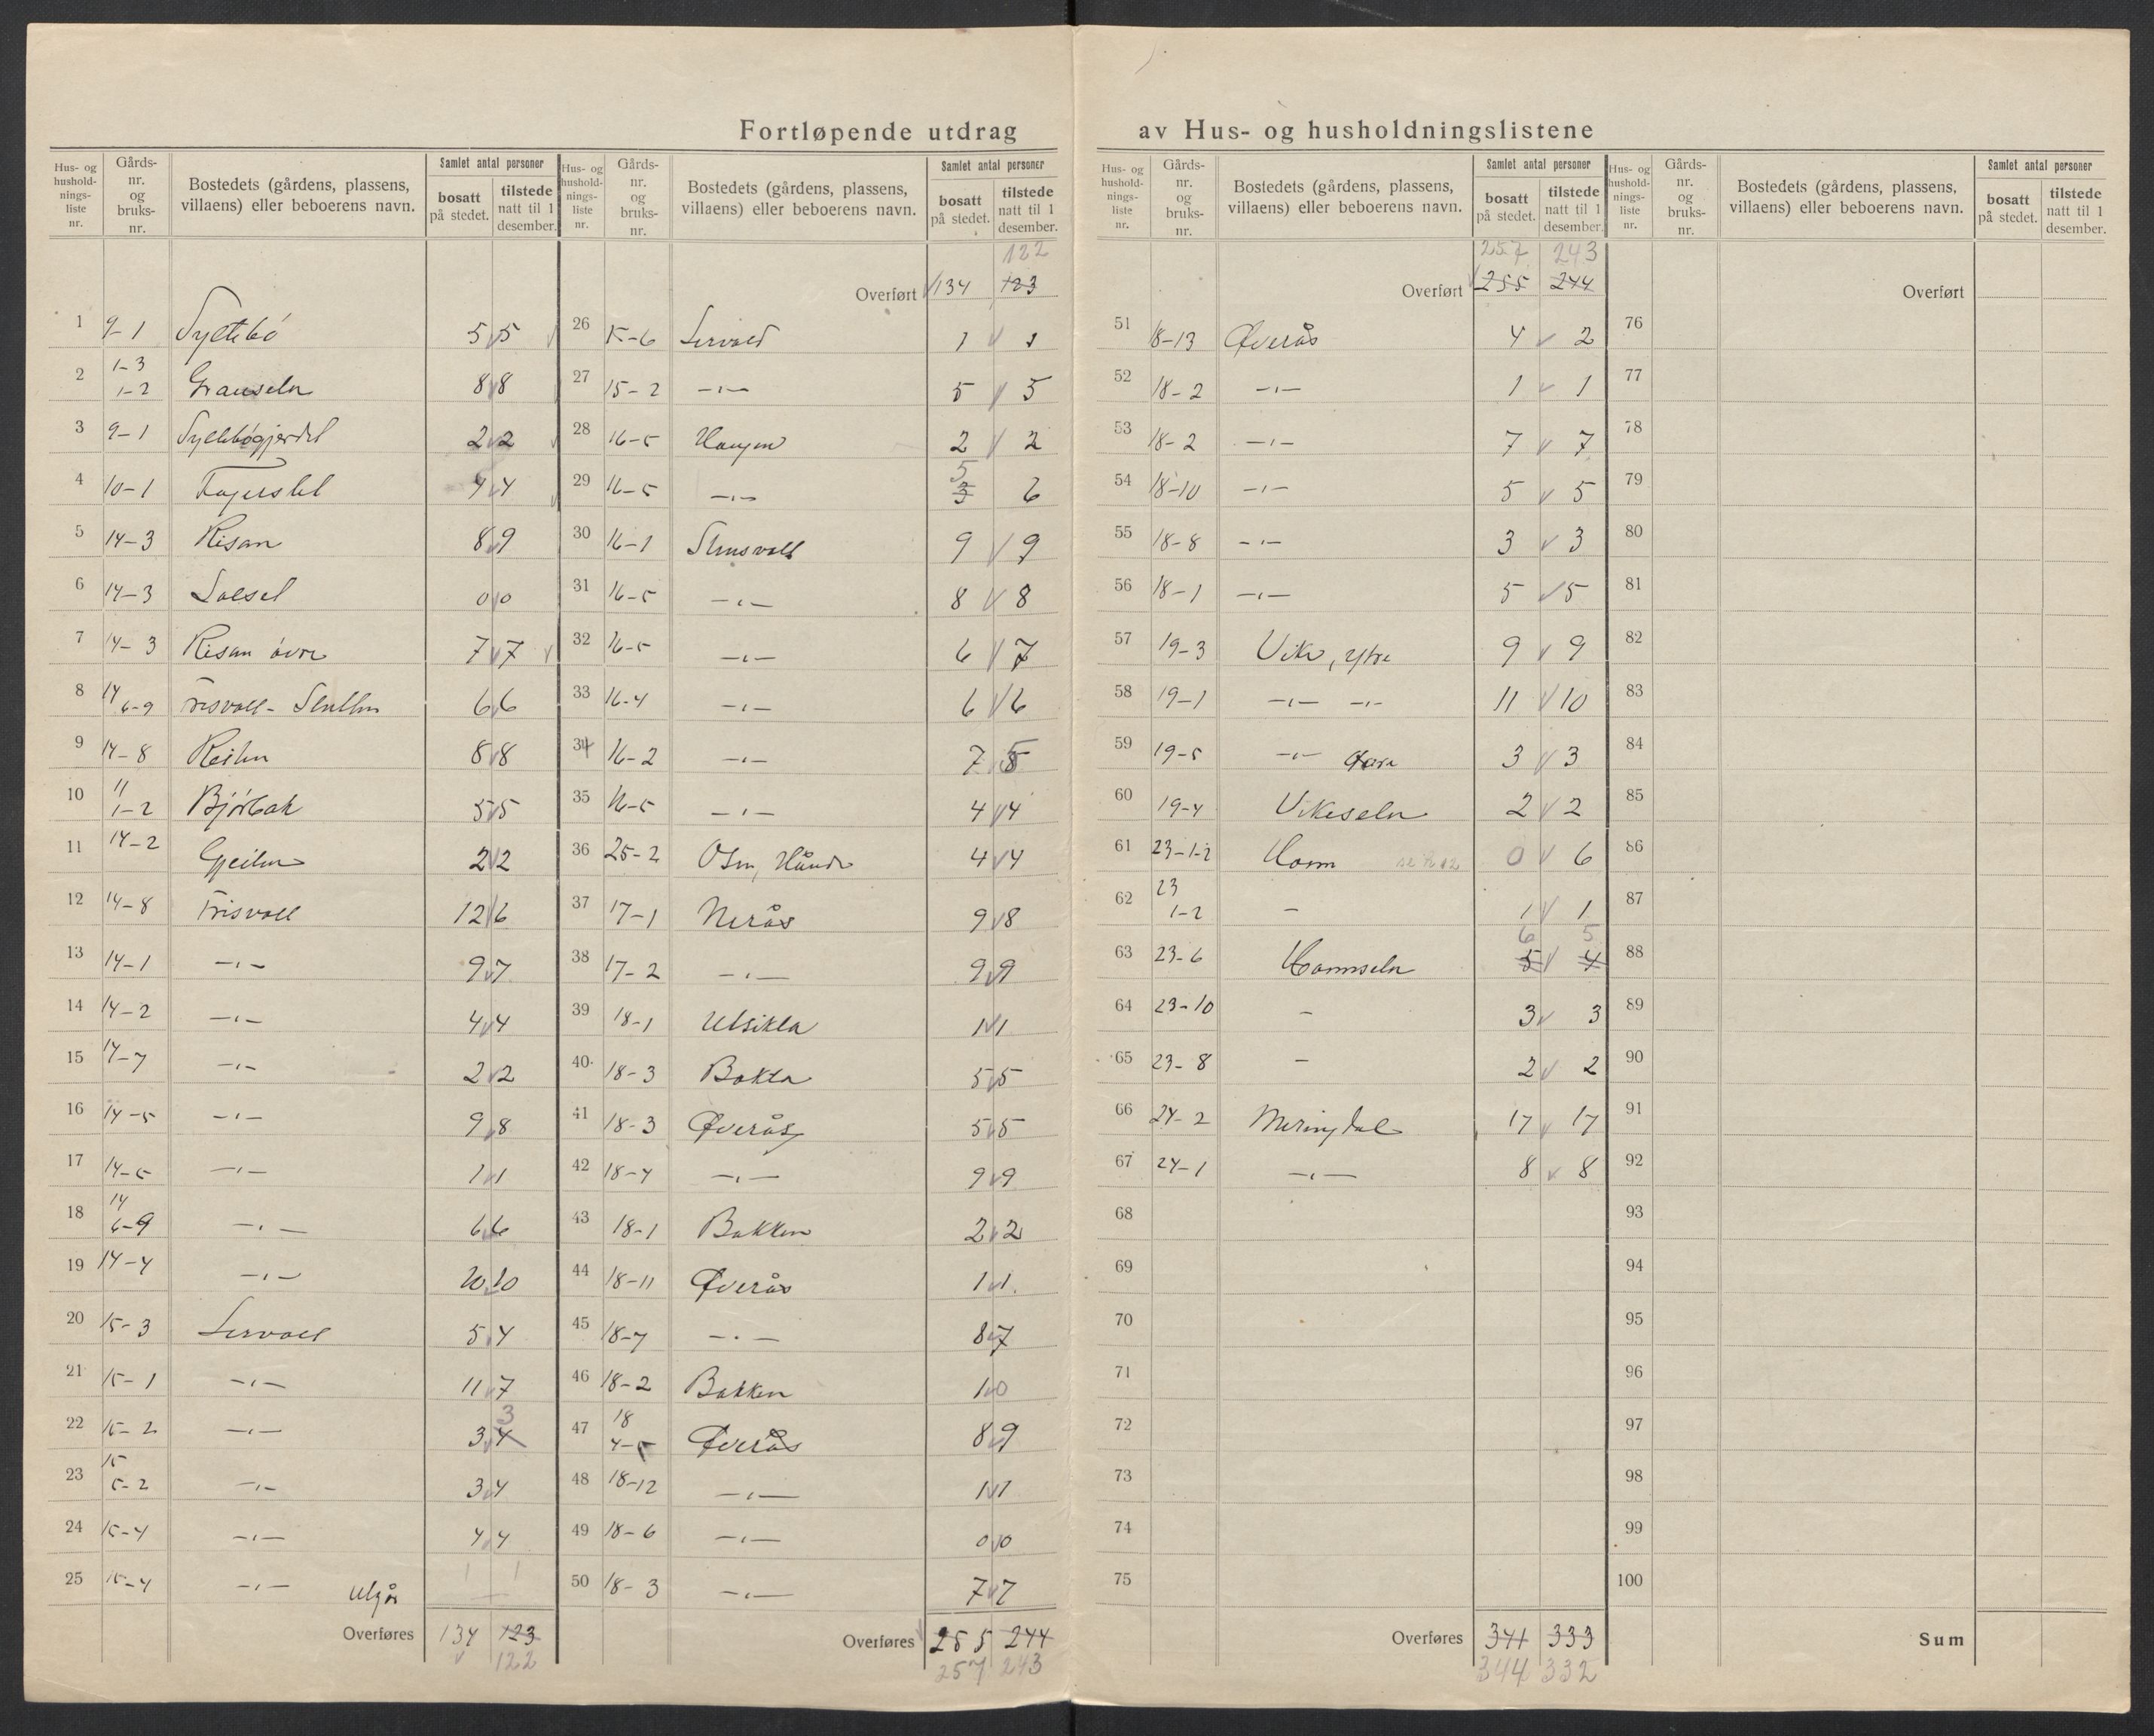 Fortløpende utdrag av Hus- og husholdningslistene
Hus- og husholdnings- liste nr. | Gårds- nr. og bruks- nr. | Bostedets (gårdens, plassens, villaens) eller beboerens navn. | Samlet antal personer | bosatt på stedet. | tilstede natt til 1 desember.
1 9-1 Syltebø 5 5
2 1-3 1-2 8 8
3 9-1 Syltebøgjerdet 2 2
4 10-1 4 4
5 14-3 Risan 8 9
6 14-3 0 0
7 14-3 Risan övre 7 7
8 14 6-9 6 6
9 14-8 8 8
10 11 1-2 Bjørbak 5 5
11 14-2 Gjeilen 2 2
12 14-8 12 6
13 14-1 -"- 9 7
14 14-2 -"- 4 4
15 14-7 -"- 2 2
16 14-5 -"- 9 8
17 14-5 -"- 1 1
18 14 6-9 -"- 6 6
19 14-4 -"- 10 10
20 15-3 5 4
21 15-1 -"- 11 7
22 15-2 -"- 3 4 3
23 15 5-2 -"- 3 4
24 15-4 -"- 4 4
25 15-4 -"- Utgår 1 1
Overføres 134 123
122
122
Overført 134 123
26 15-6 1 1
27 15-2 -"- 5 5
28 16-5 Haugen 2 2
29 16-5 -"- 5 3 6
30 16-1 9 9
31 16-5 -"- 8 8
32 16-5 -"- 6 7
33 16-4 -"- 6 6
34 16-2 -"- 7 5
35 16-5 -"- 4 4
36 25-2 4 4
37 17-1 Nerås 9 8
38 17-2 -"- 9 9
39 18-1 Utsikta 1 1
40 18-3 5 5
41 18-3 Øverås 5 5
42 18-4 -"- 9 9
43 18-1 Bakken 2 2
44 18-11 Øverås 1 1
45 18-7 -"- 8 7
46 18-2 Bakken 1 0
47 18 4-5 Øverås 8 9
48 18-12 -"- 1 1
49 18-6 -"- 0 0
50 18-3 -"- 7 7
Overføres 255 244
257 243
257 243
Overført 255 244
51 18-13 Øverås 4 2
52 18-2 -"- 1 1
53 18-2 -"- 7 7
54 18-10 -"- 5 5
55 18-8 -"- 3 3
56 18-1 -"- 5 5
57 19-3 Vike, ytre 9 9
58 19-1 -"- -"- 11 10
59 19-5 -"- øvre 3 3
60 19-4 Vikeseter 2 2
61 23-1-2 0 6
62 23 1-2 - 1 1
63 23-6 6 5 5 4
64 23-10 - 3 3
65 23-8 - 2 2
66 24-2 Meringdal 17 17
67 24-1 -"- 8 8
68
69
70
71
72
73
74
75
Overføres 341 333
344 332
Overført
76
77
78
79
80
81
82
83
84
85
86
87
88
89
90
91
92
93
94
95
96
97
98
99
100
Sum